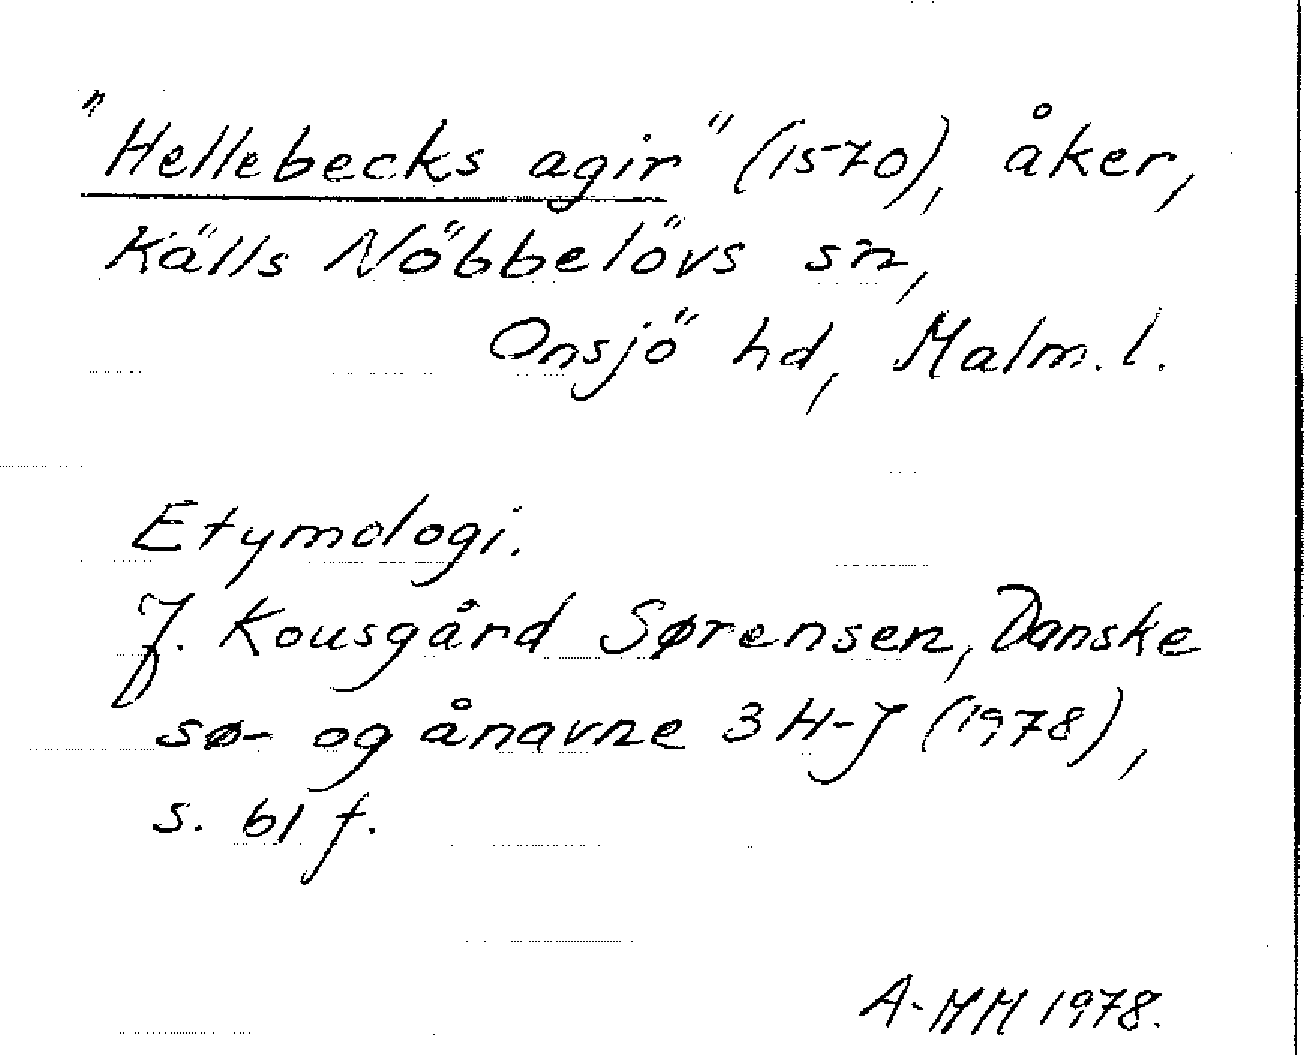 "Hellebecks agir" (1570), åker,
Källs Nöbbelövs sn,
Onsjö hd, Malm. l.
Etymologi.
J. Kousgård Sørensen, Danske
sø- og ånavne 3 H-J (1978),
s. 61 f.
A-MM 1978.